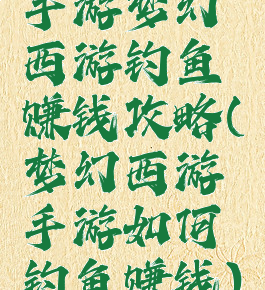 手游梦幻
西游钓鱼
赚钱攻略(
梦幻西游
手游如何
钓鱼赚钱)